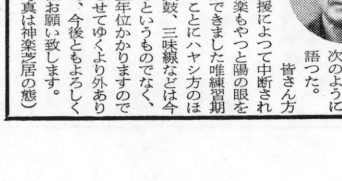 次のように
語つた。
皆さん方
援によつて中断され
楽もやつと陽の眼を
できました唯練習期
ことにハヤシ方のほ
鼓、三味線などは今
というものでなく、
年位かかりますので
せてゆくより外あり
、今後ともよろしく
お願い致します。
真は神楽芝居の態)